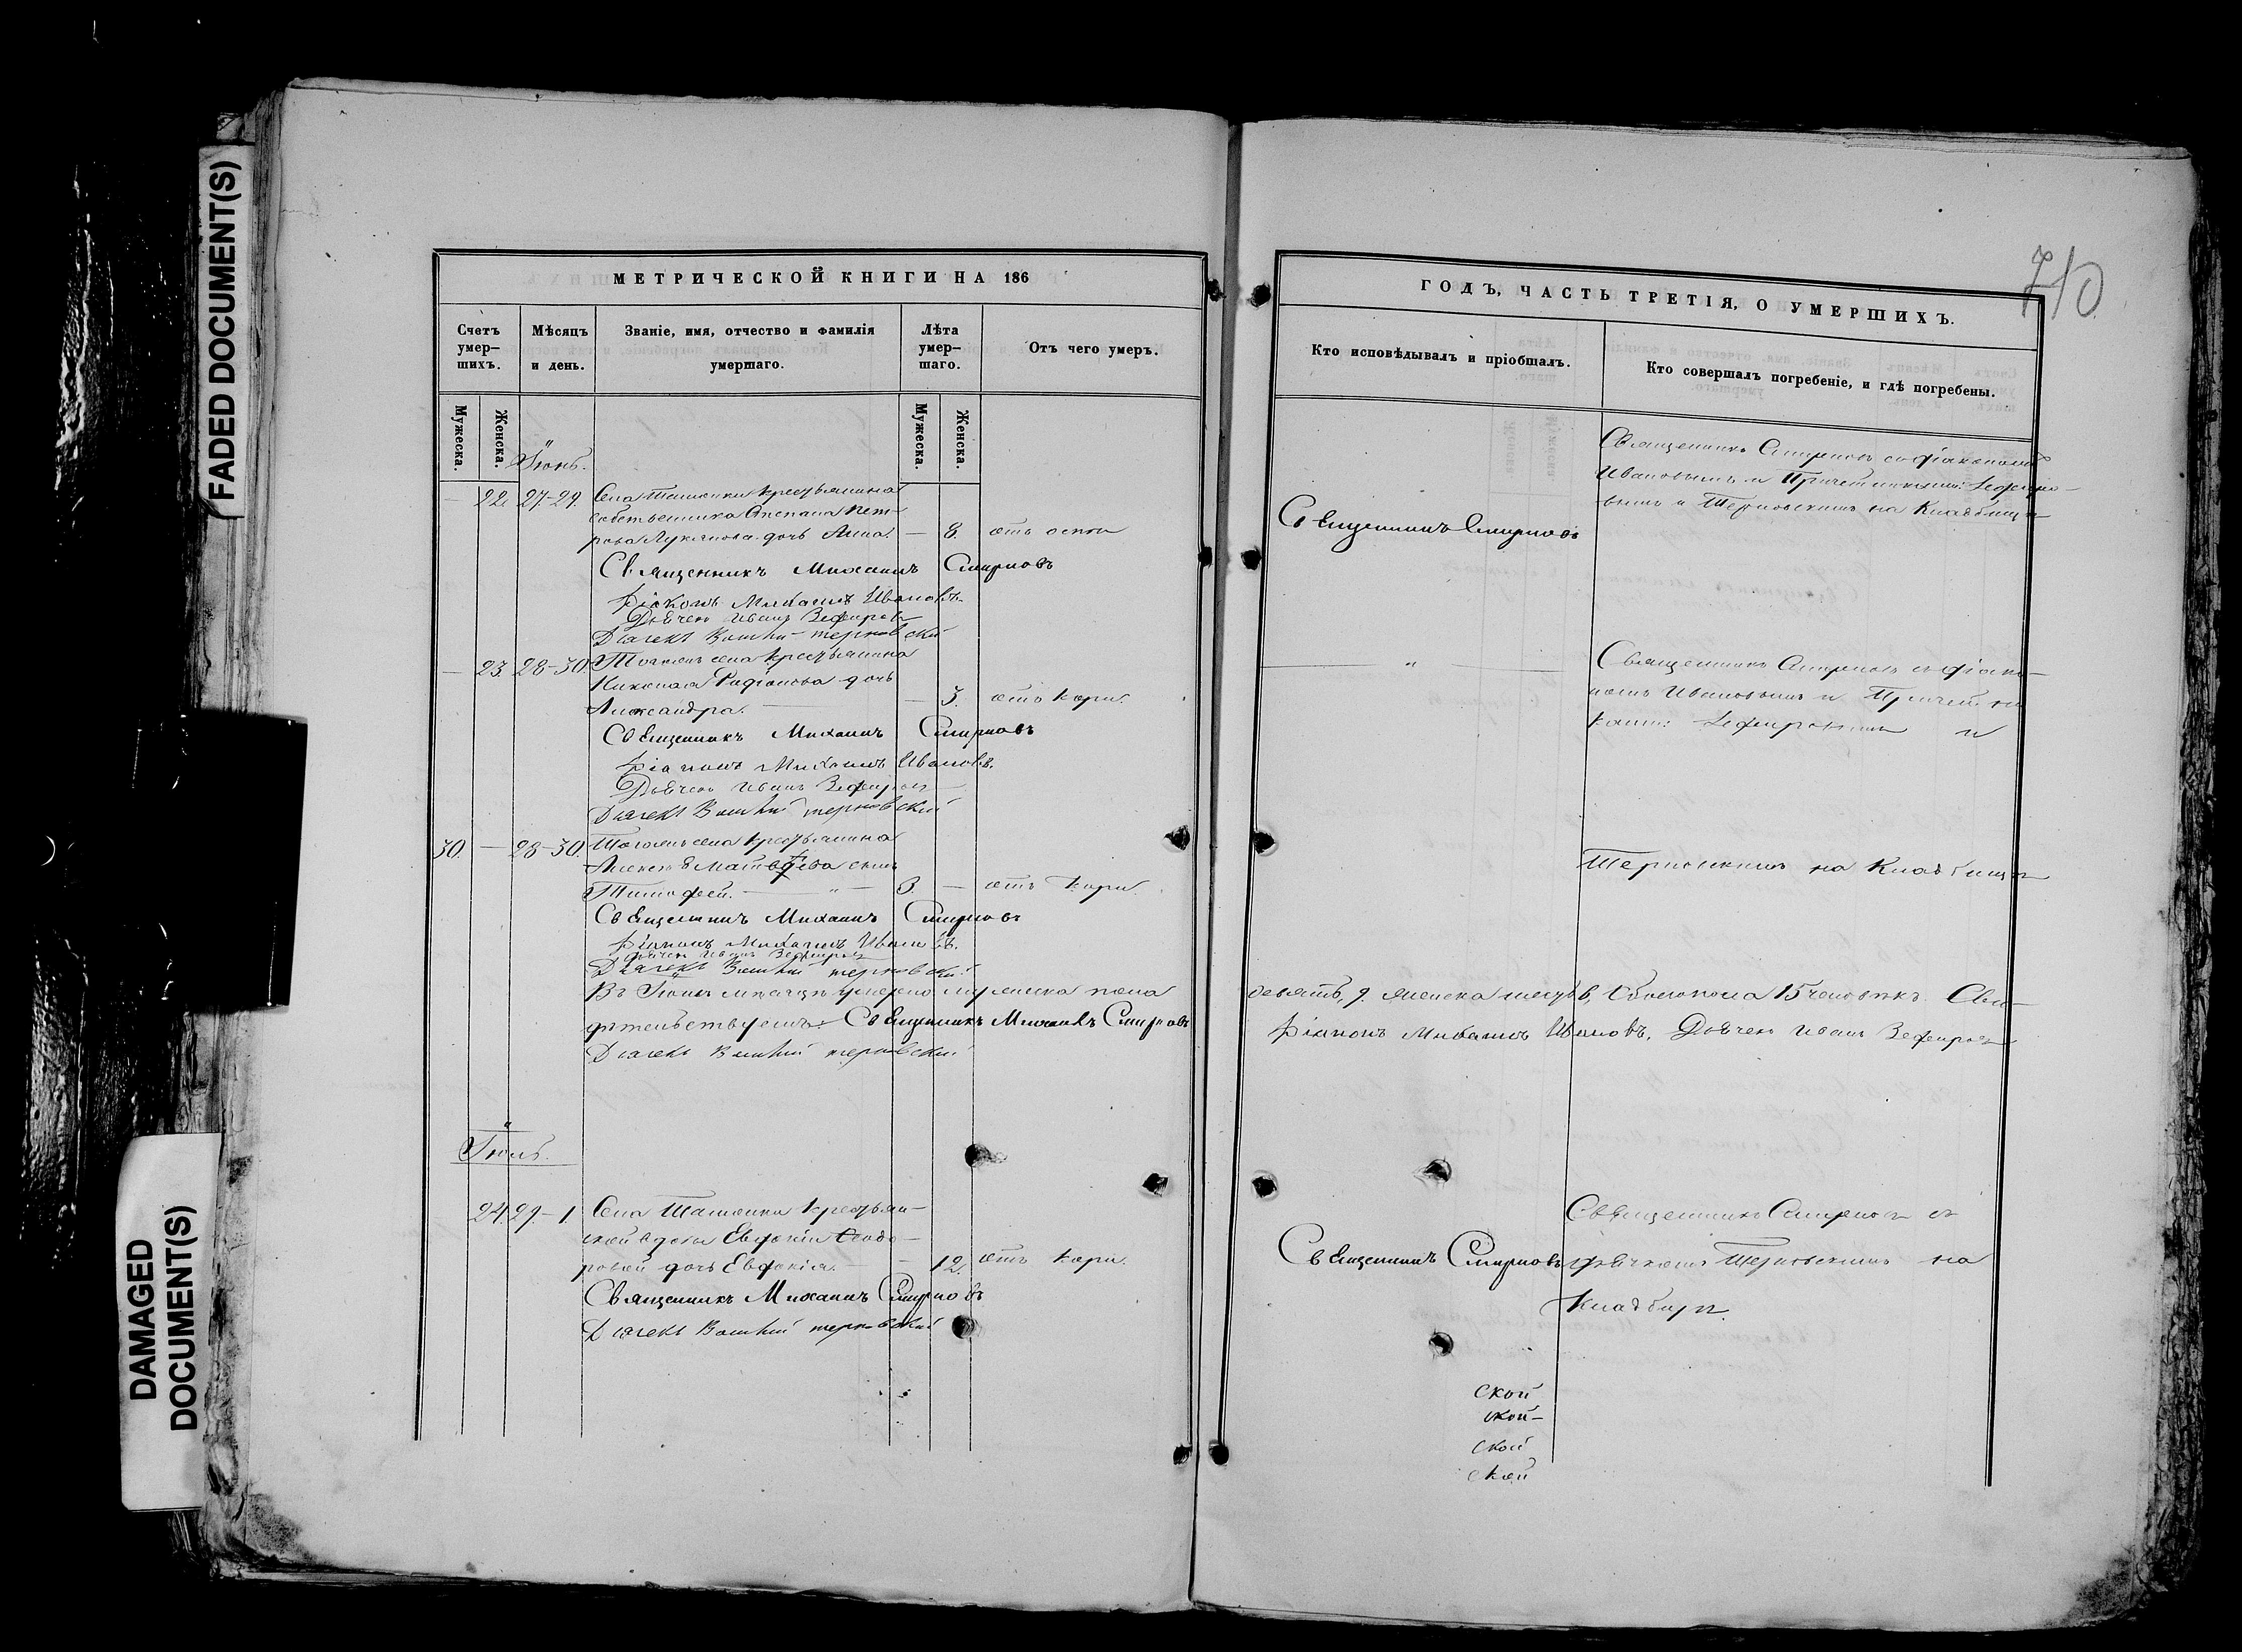 FADED DOCUMENT(S)
DAMAGED
DOCUMENT(S)
МЕТРИЧЕСКОЙ КНИГИ НА 186
Счетъ умер–шихъ.
Мѣсяцъ и день.
Званіе, имя, отчество и фамилія умершаго.
Лѣта умер–шаго.
Отъ чего умеръ.
Мужеска.
Женска.
Мужеска.
Женска.
Іюнь.
— 22. 27–29. Села крестьянина
собственника Степана Пет-
рова Лукьянова дочь Анна. — 8. отъ оспы
Священникъ Михаилъ Смирновъ
Діаконъ Михаилъ Ивановъ.
Дьячекъ Иванъ Зефировъ
Дьячекъ Терновский
— 23. 28–30. Тогожъ села крестьянина
Николая дочь
Александра. — 3. отъ кори.
Священникъ Михаилъ Смирновъ
Діаконъ Михаилъ Ивановъ.
Дьячекъ Иванъ Зефировъ
Дьячекъ Терновский
30. — 28–30. Тогожъ села крестьянина
Алексѣя Матвѣева сынъ
Тимофей. — 3. — отъ кори.
Священникъ Михаилъ Смирновъ
Діаконъ Михаилъ Ивановъ.
Дьячекъ Иванъ Зефировъ
Дьячекъ Терновский
Въ Іюнѣ мѣсяцѣ умерло мужеска пола
дѣтельствуемъ: Священникъ Михаилъ Смирновъ
Дьячекъ Терновский
Іюль.
24. 29.–1. Села крестьян-
ской вдовы Евфиміи Ѳедо-
ровой дочь — 12. отъ кори.
Священникъ Михаилъ Смирновъ
Дьячекъ Терновский
710
ГОДЪ, ЧАСТЬ ТРЕТІЯ, О УМЕРШИХЪ.
Кто исповѣдывалъ и пріобщалъ.
Кто совершалъ погребеніе, и гдѣ погребены.
Священникъ Смирновъ съ діакономъ
Ивановымъ и Причетниками: Зефиро-
вымъ и Терновскимъ на Кладбищѣ
Священникъ Смирновъ
— " —
Священникъ Смирновъ съ діако-
номъ Ивановымъ и Причетни
ками: Зефировымъ и
Терновскимъ на Кладбищѣ
девять, 9. женска шесть 6, обоего пола 15 человѣкъ Сви-
Діаконъ Михаилъ Ивановъ. Дьячекъ Иванъ Зефировъ
Священникъ Смирновъ съ
Священникъ Смирновъ
дьячкомъ Терновскимъ на
Кладбищѣ.
ской
ской–
ской
ской